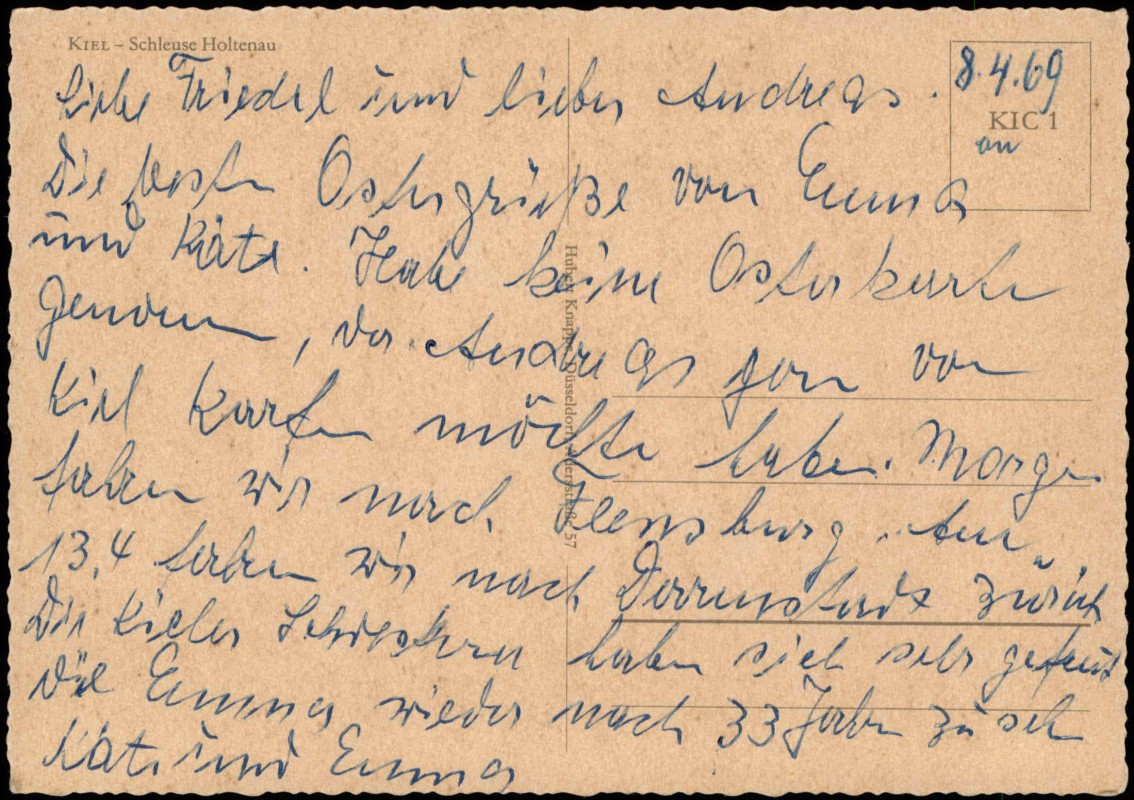 KIEL – Schleuse Holtenau
8.4.69
KIC 1
an
Liebe Friedel und lieber Andreas.
Die besten Ostergrüße von Emma
und Käte. Habe keine Osterkarte
genommen, da Andreas gern von
Kiel Karten möchte haben. Morgen
fahren wir nach Flensburg. Am
13.4 fahren wir nach Darmstadt zurück
Die Kieler Schwestern haben sich sehr gefreut
die Emma wieder nach 33 Jahren zu sehen
Käte und Emma
Hubert Knappe, Düsseldorf, Auerstraße 57